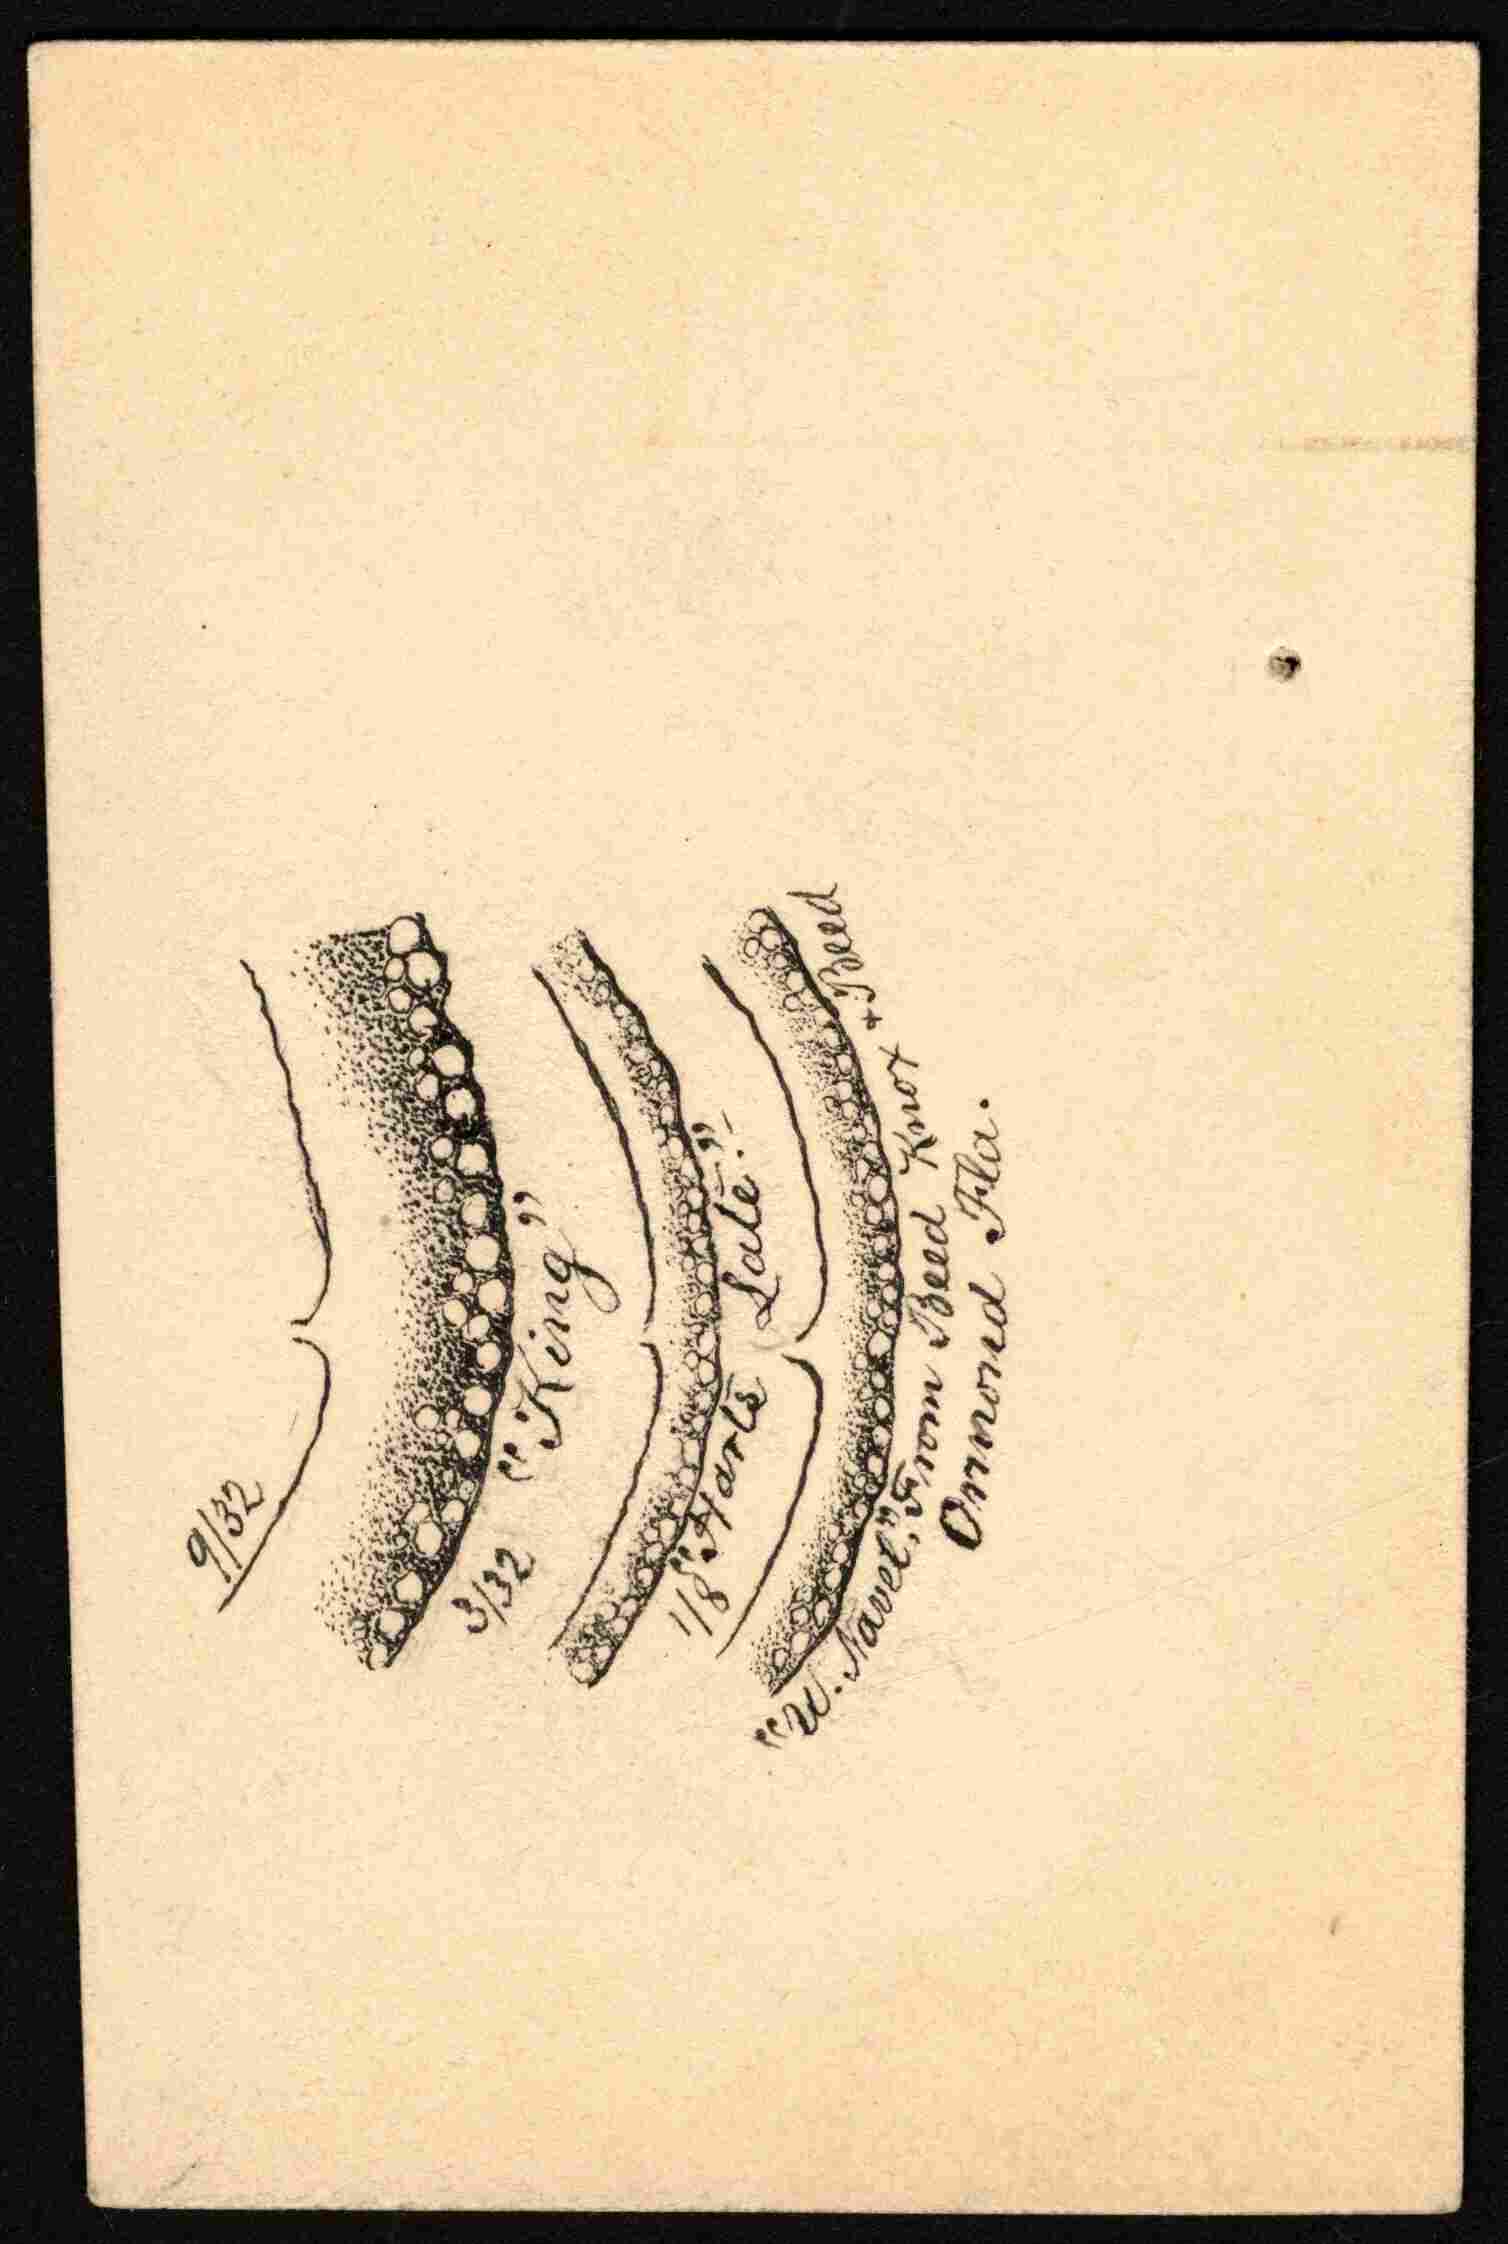 9/32
"King"
3/32
"Harts Late."
1/8
"W. Navel," From Beed Knox + Beed
Ormond Fla.